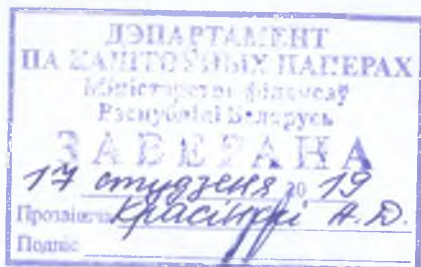 ДЭПАРТАМЕНТ
ПА КАШТОЎНЫХ ПАПЕРАХ
Міністэрства фінансаў
Рэспублікі Беларусь
ЗАВЕРАНА
17 студзеня 20 19
Прозвішча
Подпіс